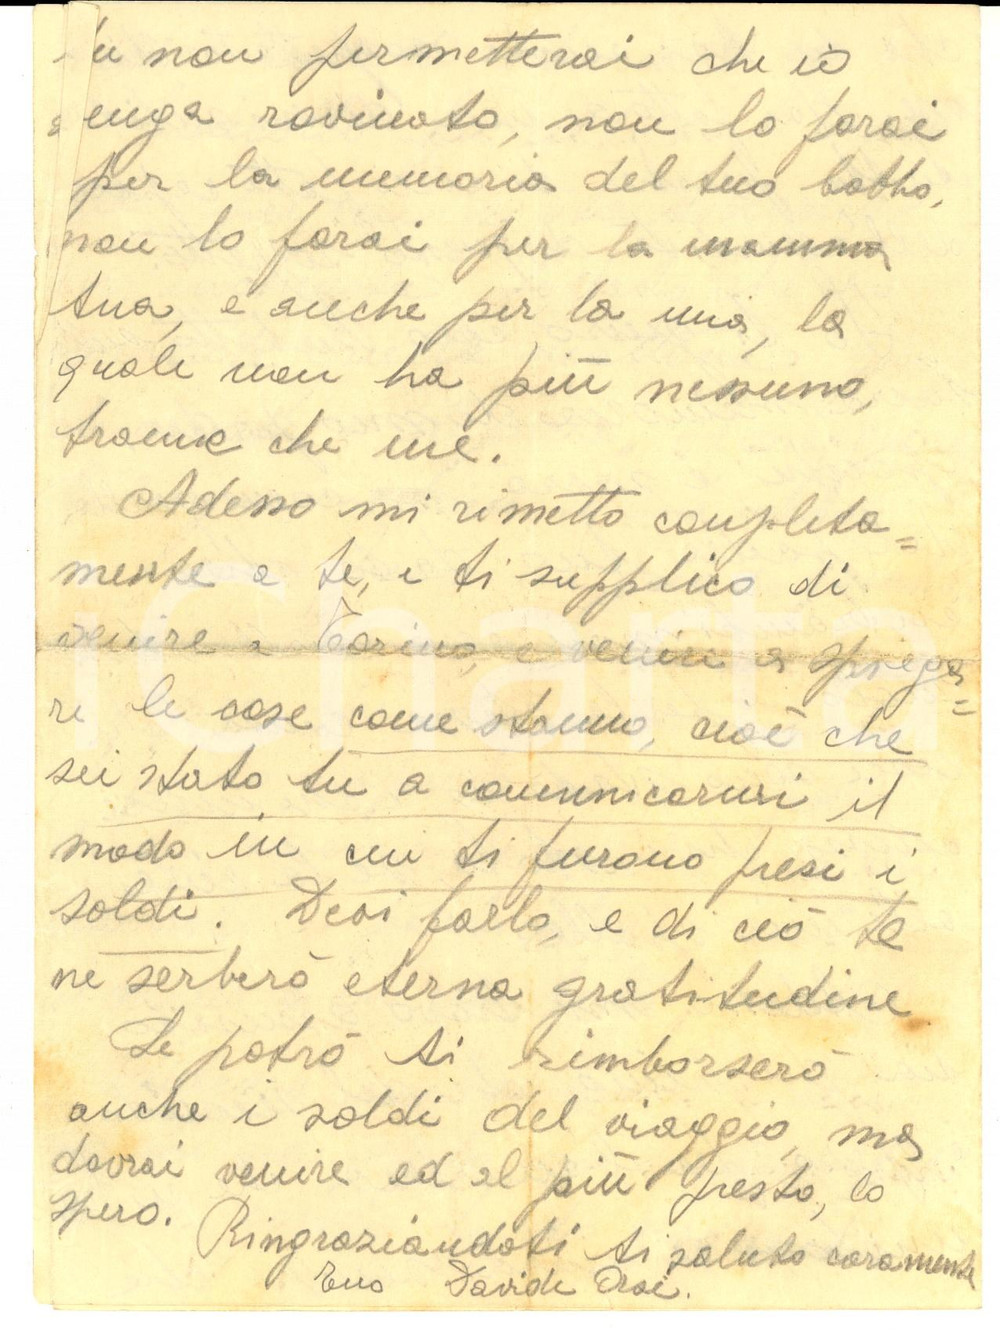 tu non permetterai che io
venga rovinato, non lo farai
per la memoria del tuo babbo,
non lo farai per la mamma
tua, e anche per la mia, la
quale non ha più nessuno,
tranne che me.
Adesso mi rimetto completa=
mente a te, e ti supplico di
venire a Torino, e venire a spiega=
re le cose come stanno, cioè che
sei stato tu a comunicarmi il
modo in cui ti furono presi i
soldi. Devi farlo, e di ciò te
ne serberò eterna gratitudine
Se potrò ti rimborserò
anche i soldi del viaggio, ma
dovrai venire ed al più presto, lo
spero. Ringraziandoti ti saluto caramente
Tuo Davide
iCharta